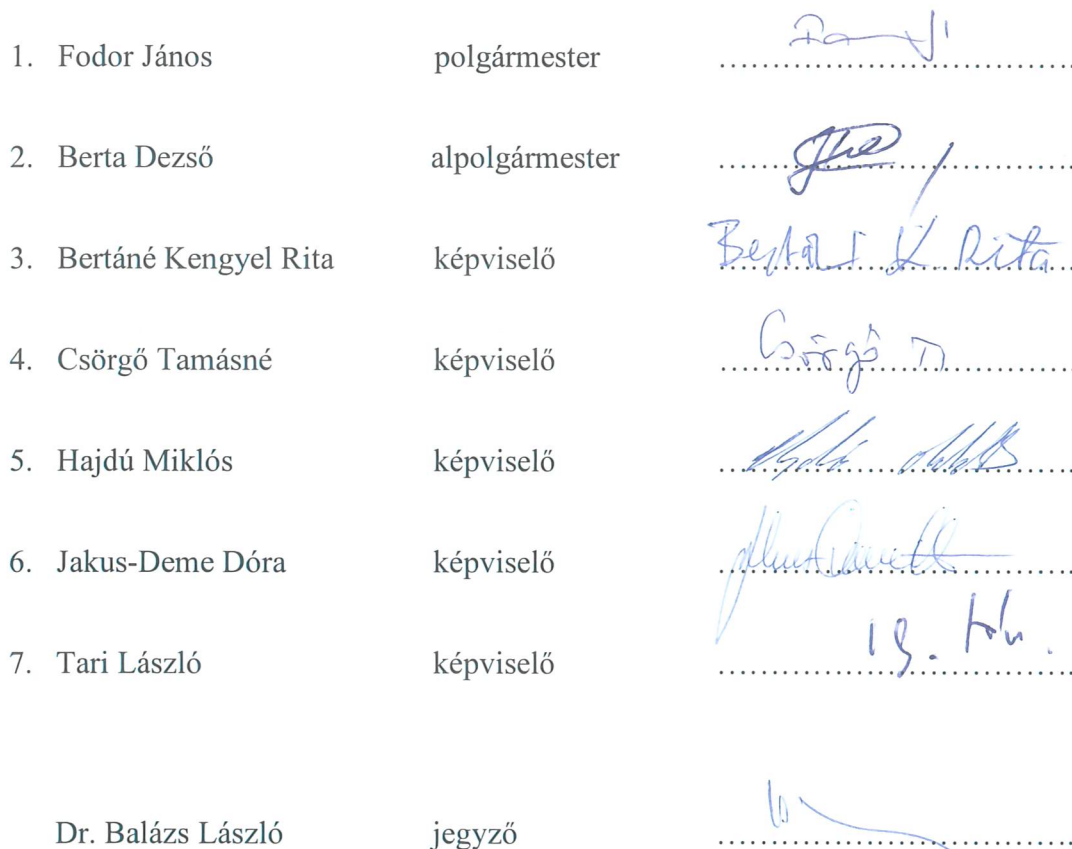 1. Fodor János polgármester ..............................
2. Berta Dezső alpolgármester ..............................
3. Bertáné Kengyel Rita képviselő Rita
4. Csörgő Tamásné képviselő Csörgő T
5. Hajdú Miklós képviselő ..............................
6. Jakus-Deme Dóra képviselő ..............................
7. Tari László képviselő ..............................
Dr. Balázs László jegyző ..............................